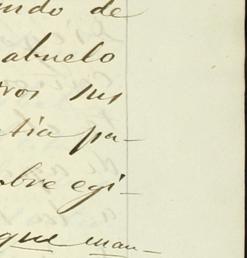 ndo de
abuelo
ros sus
tia pa-
bre egi-
que man-